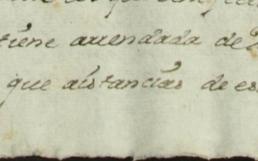 tiene arrendada de
que distancias de es